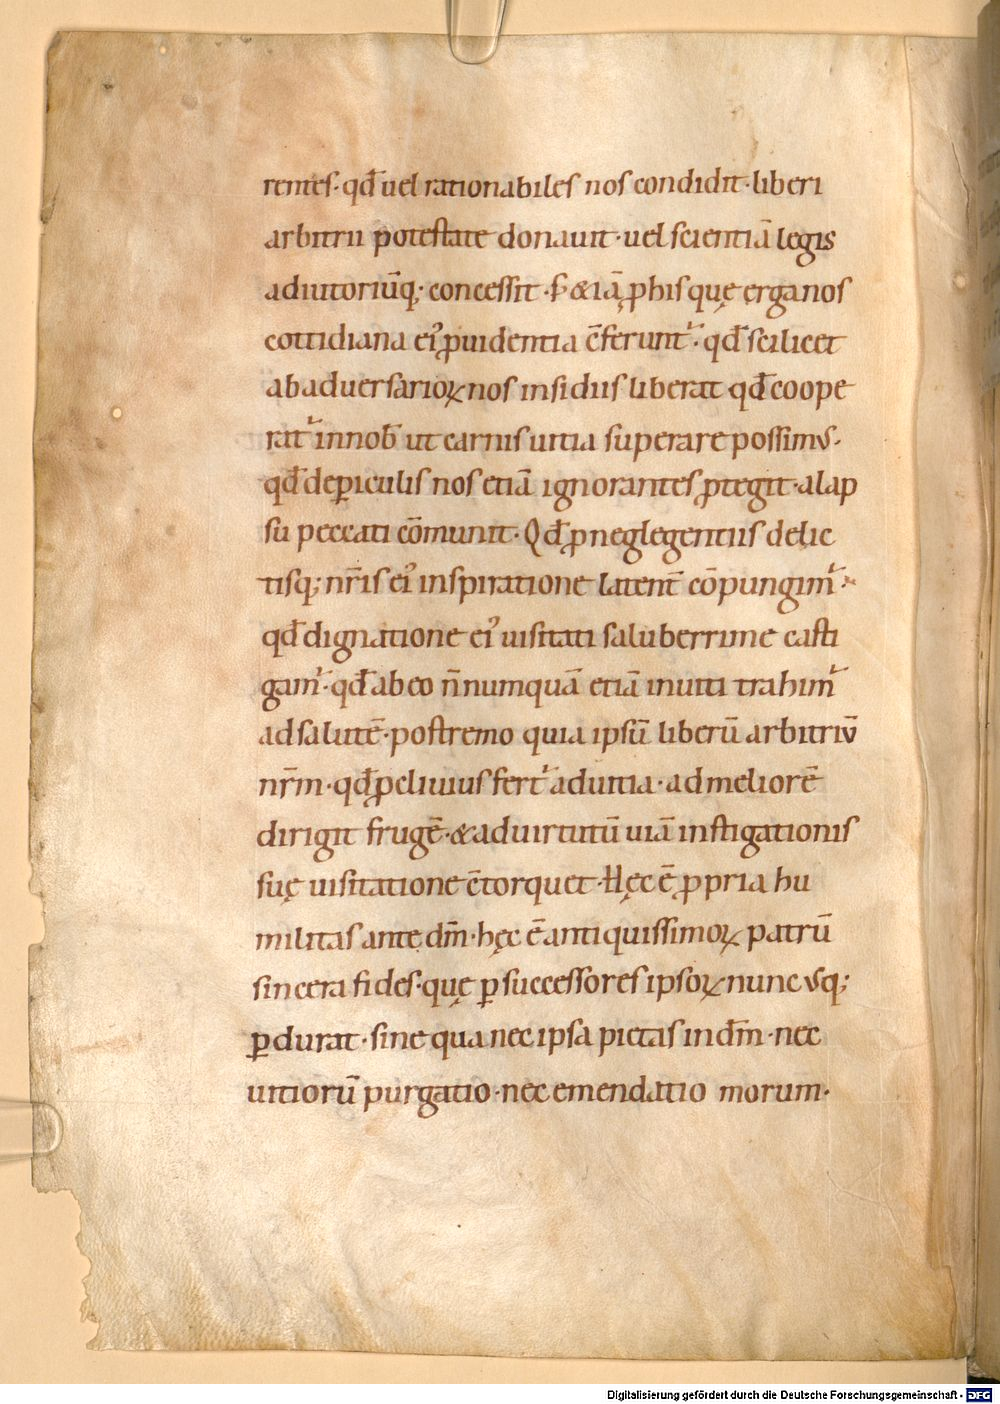 rentes· qđ uel rationabiles nos condidit· liberi
arbitrii potestate donauit· uel scientiā legis
adiutoriūq; concessit· s; & iā, ꝓ his quę erga nos
cottidiana ei' ꝓuidentia c̄feruntᷣ· qđ scilicet
ab aduersarioꝝ nos insidiis liberat qđ coope
ratᷣ in nob̄ ut carnis uitia superare possimus·
qđ de ꝑiculis nos etiā ignorantes ꝓtegit· a lap
su peccati cōmunit· Qđ ꝓ neglegentiis delic
tisq; nr̄is ei' inspiratione latent̄ cōpungimᷣ·
qđ dignatione ei' uisitati saluberrime casti
gamᷣ· qđ ab eo n̄numquā etiā inuiti trahimᷣ
ad salutē· postremo quia ipsū liberū arbitriū
nr̄m· qđ ꝓcliuius fertᷣ ad uitia· ad meliorē
dirigit frugē· & ad uirtutū uiā instigationis
suę uisitatione c̄torquet· Hęc ē ꝓpria hu
militas ante dm̄· hęc ē antiquissimoꝝ patrū
sincera fides· quę ꝑ successores ipsoꝝ nunc usq;
ꝑdurat· sine qua nec ipsa pietas in dm̄· nec
uitiorū purgatio· nec emendatio morum·
Digitalisierung gefördert durch die Deutsche Forschungsgemeinschaft - DFG